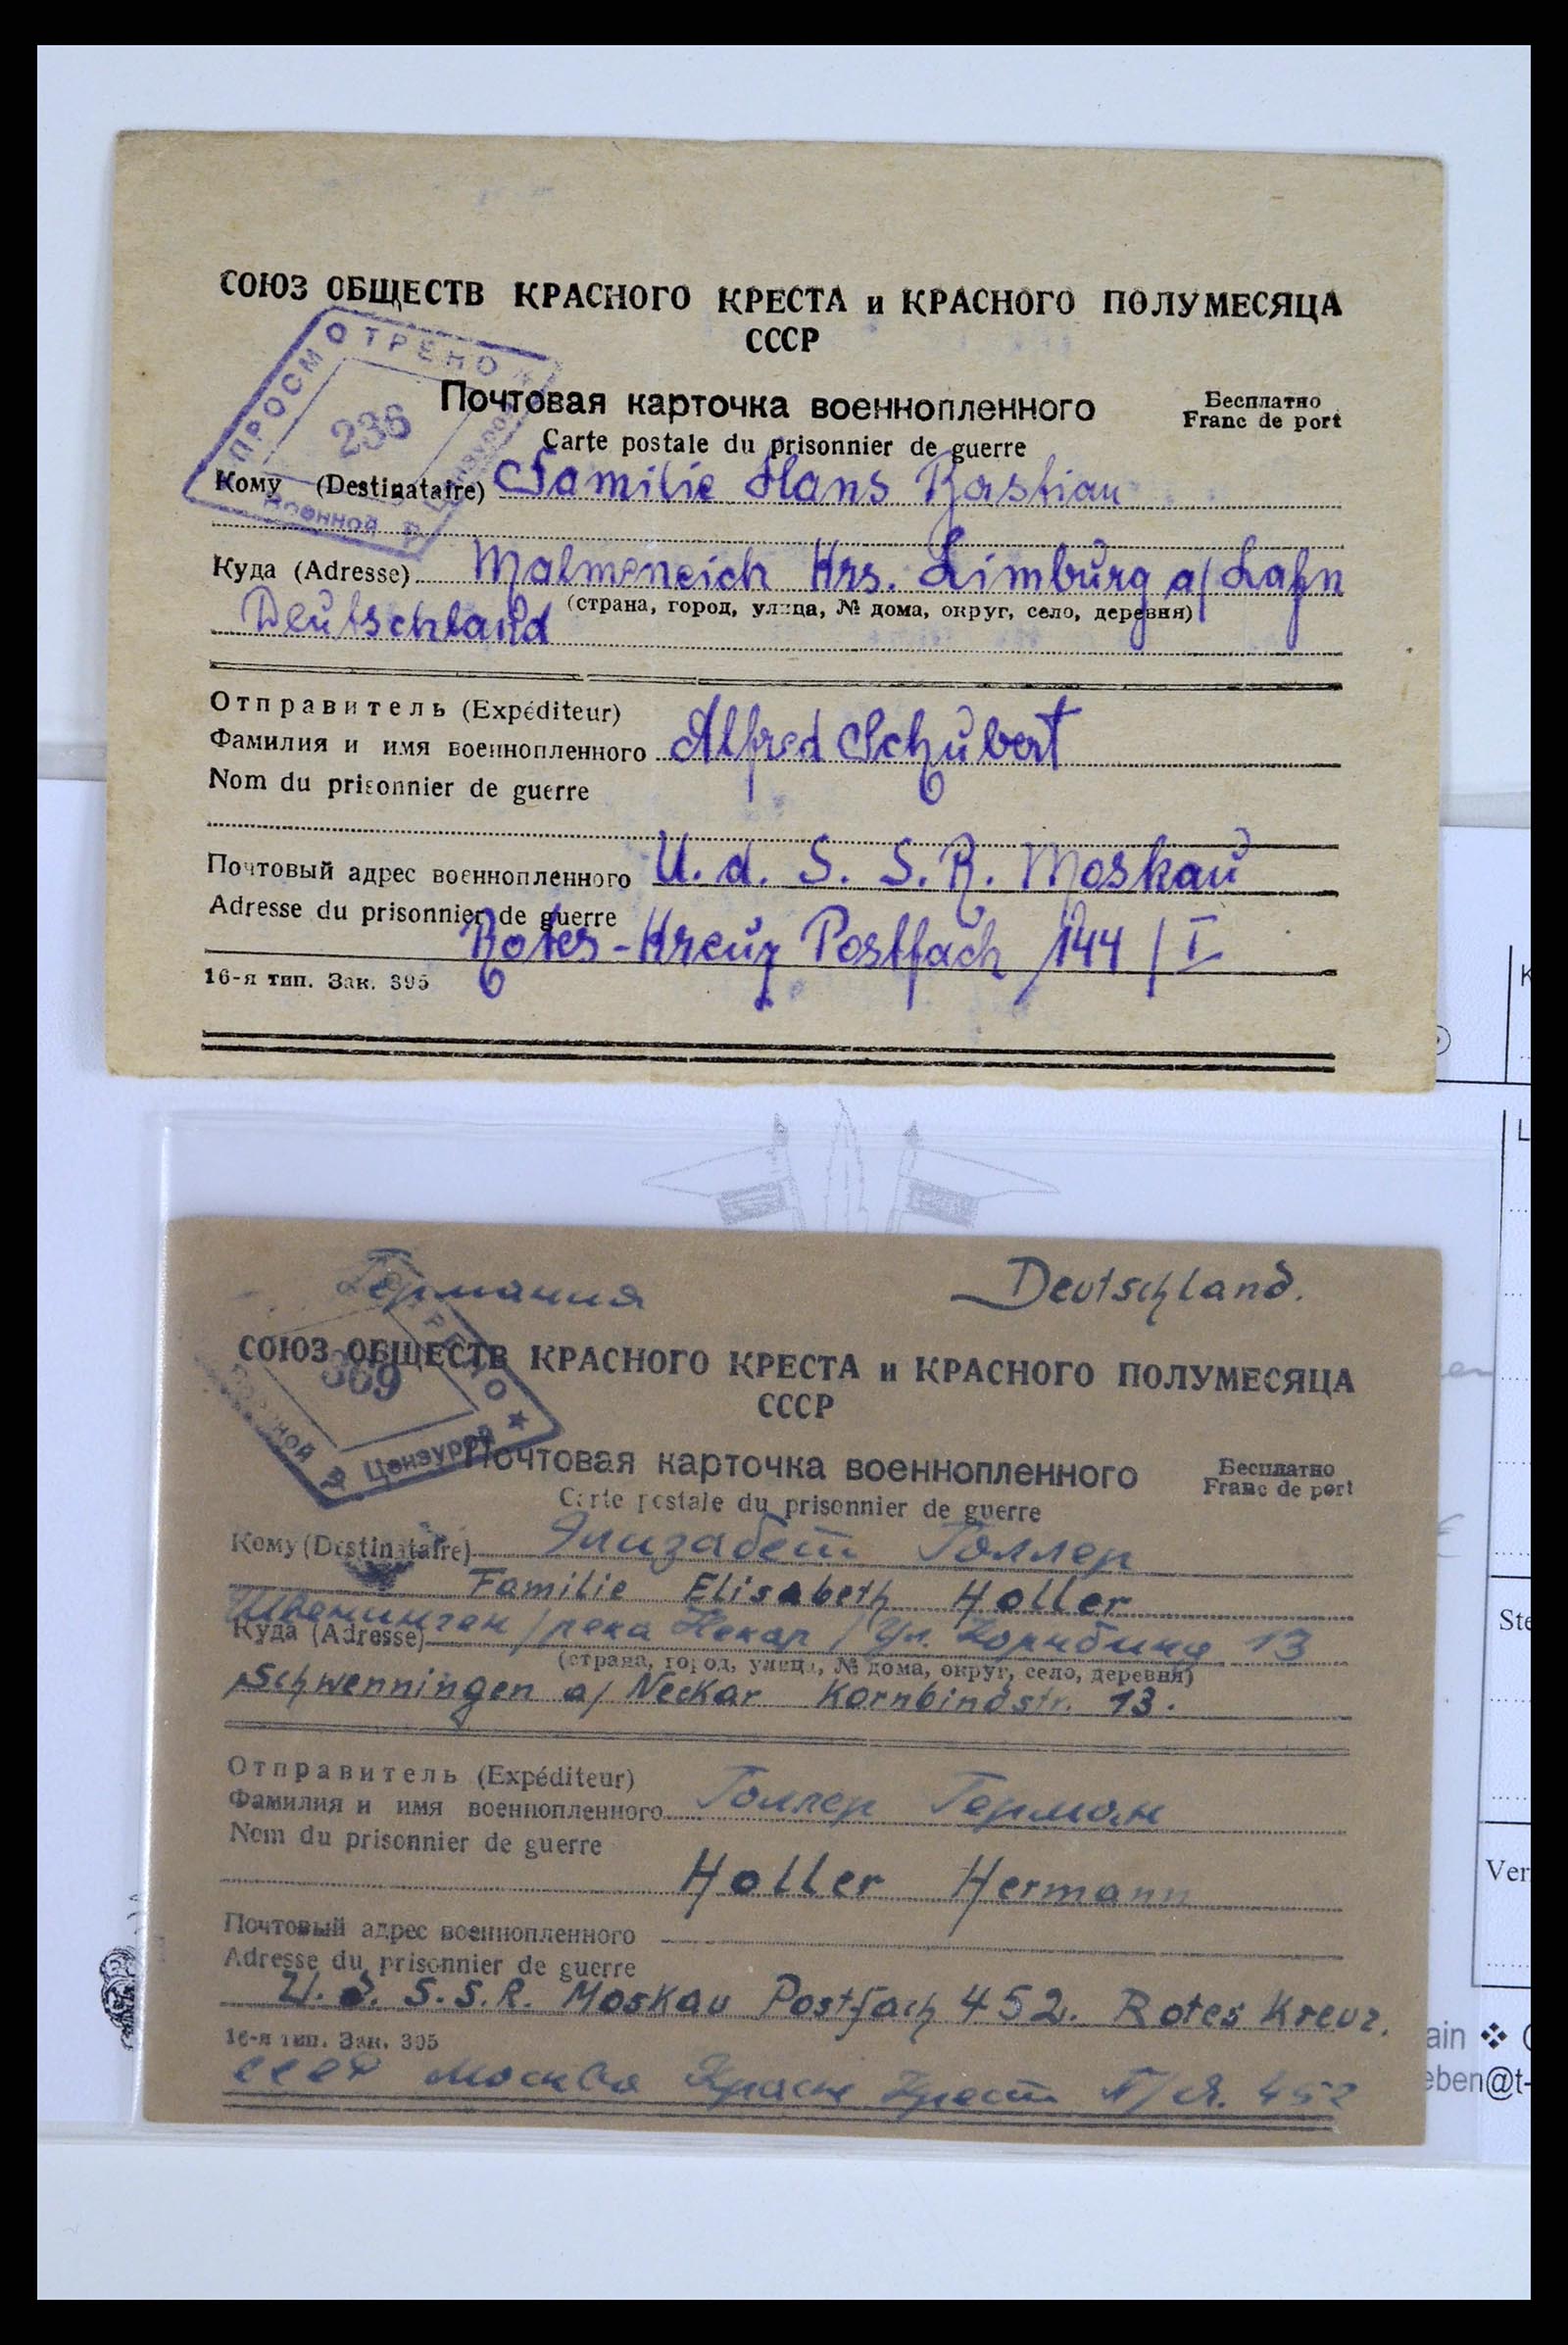 СОЮЗ ОБЩЕСТВ КРАСНОГО КРЕСТА и КРАСНОГО ПОЛУМЕСЯЦА
СССР
ПРОСМОТРЕНО
236
Военной
Почтовая карточка военнопленного
Бесплатно
Carte postale du prisonnier de guerre
Franc de port
Кому (Destinataire) Familie Hans Bastian
Куда (Adresse) Malmeneich Krs. Limburg a/ Lahn
(страна, город, улица, № дома, округ, село, деревня)
Deutschland
Отправитель (Expéditeur)
Фамилия и имя военнопленного Alfred Schubert
Nom du prisonnier de guerre
Почтовый адрес военнопленного U. d. S. S. R. Moskau
Adresse du prisonnier de guerre
Rotes-Kreuz Postfach 144 / I
16-я тип. Зак. 395
Германия Deutschland.
СОЮЗ ОБЩЕСТВ КРАСНОГО КРЕСТА и КРАСНОГО ПОЛУМЕСЯЦА
СССР
369
Цензурой
Почтовая карточка военнопленного
Бесплатно
Carte postale du prisonnier de guerre
Franc de port
Кому (Destinataire) Элизабет Голлер
Familie Elisabeth Holler
Швенинген / река Некар / Ул. 13
Куда (Adresse)
(страна, город, улица, № дома, округ, село, деревня)
Schwenningen a/ Neckar Kornbindstr. 13.
Отправитель (Expéditeur)
Фамилия и имя военнопленного Голлер Герман
Nom du prisonnier de guerre
Holler Hermann
Почтовый адрес военнопленного
Adresse du prisonnier de guerre
U. d. S.S.R. Moskau Postfach 452. Rotes Kreuz.
16-я тип. Зак. 395
СССР Москва Красн Крест П/Я. 452
Ste
Ver
ain ❖
eben@t-